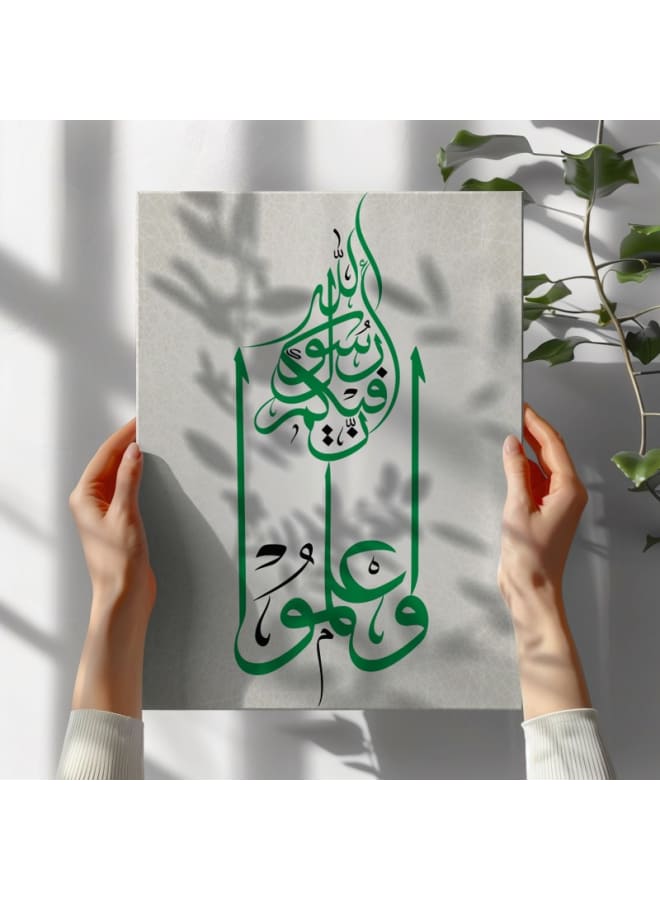 واعلمُوا
أنّ فيكم رسُول الله